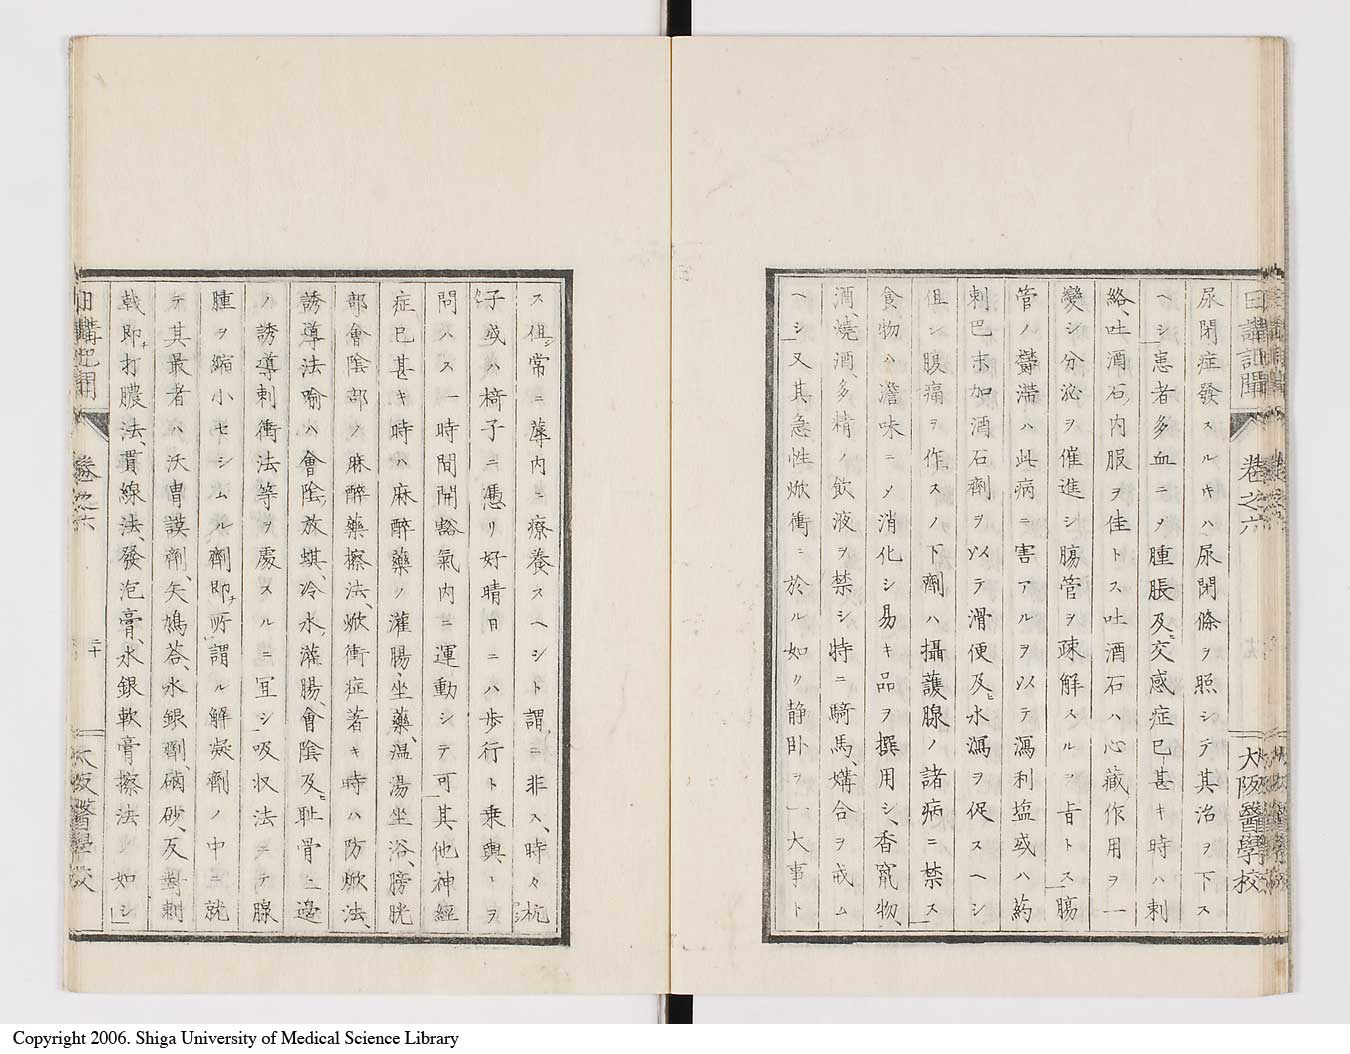 日講記聞
卷之六
大阪醫學校
尿閉症發スルキハ尿閉條ヲ照シテ其治ヲ下ス
ヘシ患者多血ニメ腫脹及ヒ交感症已甚キ時ハ刺
絡、吐酒石、内服ヲ佳トス吐酒石ハ心藏作用ヲ一
變シ分泌ヲ催進シ膓管ヲ疎解スルヲ旨トス膓
管ノ鬱滞ハ此病ニ害アルヲ以テ瀉利塩或ハ葯
刺巴末加酒石劑ヲ以テ滑便及ヒ水瀉ヲ促スヘシ
但シ腹痛ヲ作スノ下劑ハ攝護腺ノ諸病ニ禁ス
食物ハ澹味ニメ消化シ易キ品ヲ撰用シ、香竄物、
酒、燒酒、多精ノ飲液ヲ禁シ特ニ騎馬、媾合ヲ戒ム
ヘシ又其急性焮衝ニ於ル如リ静卧ヲ一大事ト
ス但シ常ニ蓐内ニ療養スヘシト謂ニ非ス、時々杭
子或ハ椅子ニ憑リ好晴日ニハ歩行ト乗輿トヲ
問スス一時間開豁氣内ニ運動シテ可其他神經
症已甚キ時ハ麻醉藥ノ灌腸、坐藥、温湯坐浴、膀胱
部會陰部ノ麻醉藥擦法、焮衝症著キ時ハ防焮法、
誘導法喻ハ會陰放蜞、冷水灌腸、會陰及ヒ耻骨上邊
ノ誘導刺衝法等ヲ處スルニ冝シ吸収法ニテ腺
腫ヲ縮小セシムル劑即ナ所謂ル解凝劑ノ中ニ就
テ其最者ハ沃曹謨劑、矢鳩荅、水銀劑、硇砂、反對刺
戟即ナ打膿法、貫線法、發泡膏、水銀軟膏擦法ノ如シ
日講記聞
卷之六
二十
大阪醫學校
Copyright 2006. Shiga University of Medical Science Library